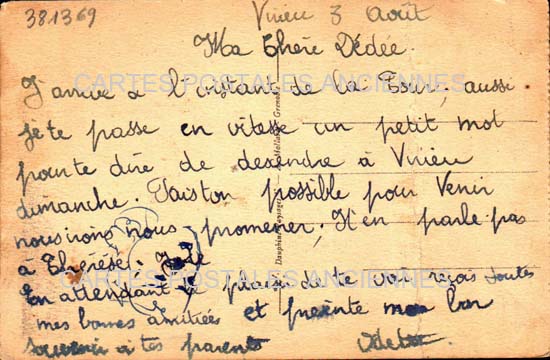 381369
Virieu 3 Août
Ma Chère Dédée.
J'arrive a l'instant de La Tour, aussi
je te passe en vitesse un petit mot
pour te dire de desendre à Virieu
dimanche. Fais ton possible pour Venir
nous irons nous promener, N'en parle pas
à Thérèse.
En attendant le plaisir de te voir reçois toutes
mes bonnes amitiées et présente mon bon
souvenir à tes parents
CARTES POSTALES ANCIENNES
CARTES POSTALES ANCIENNES